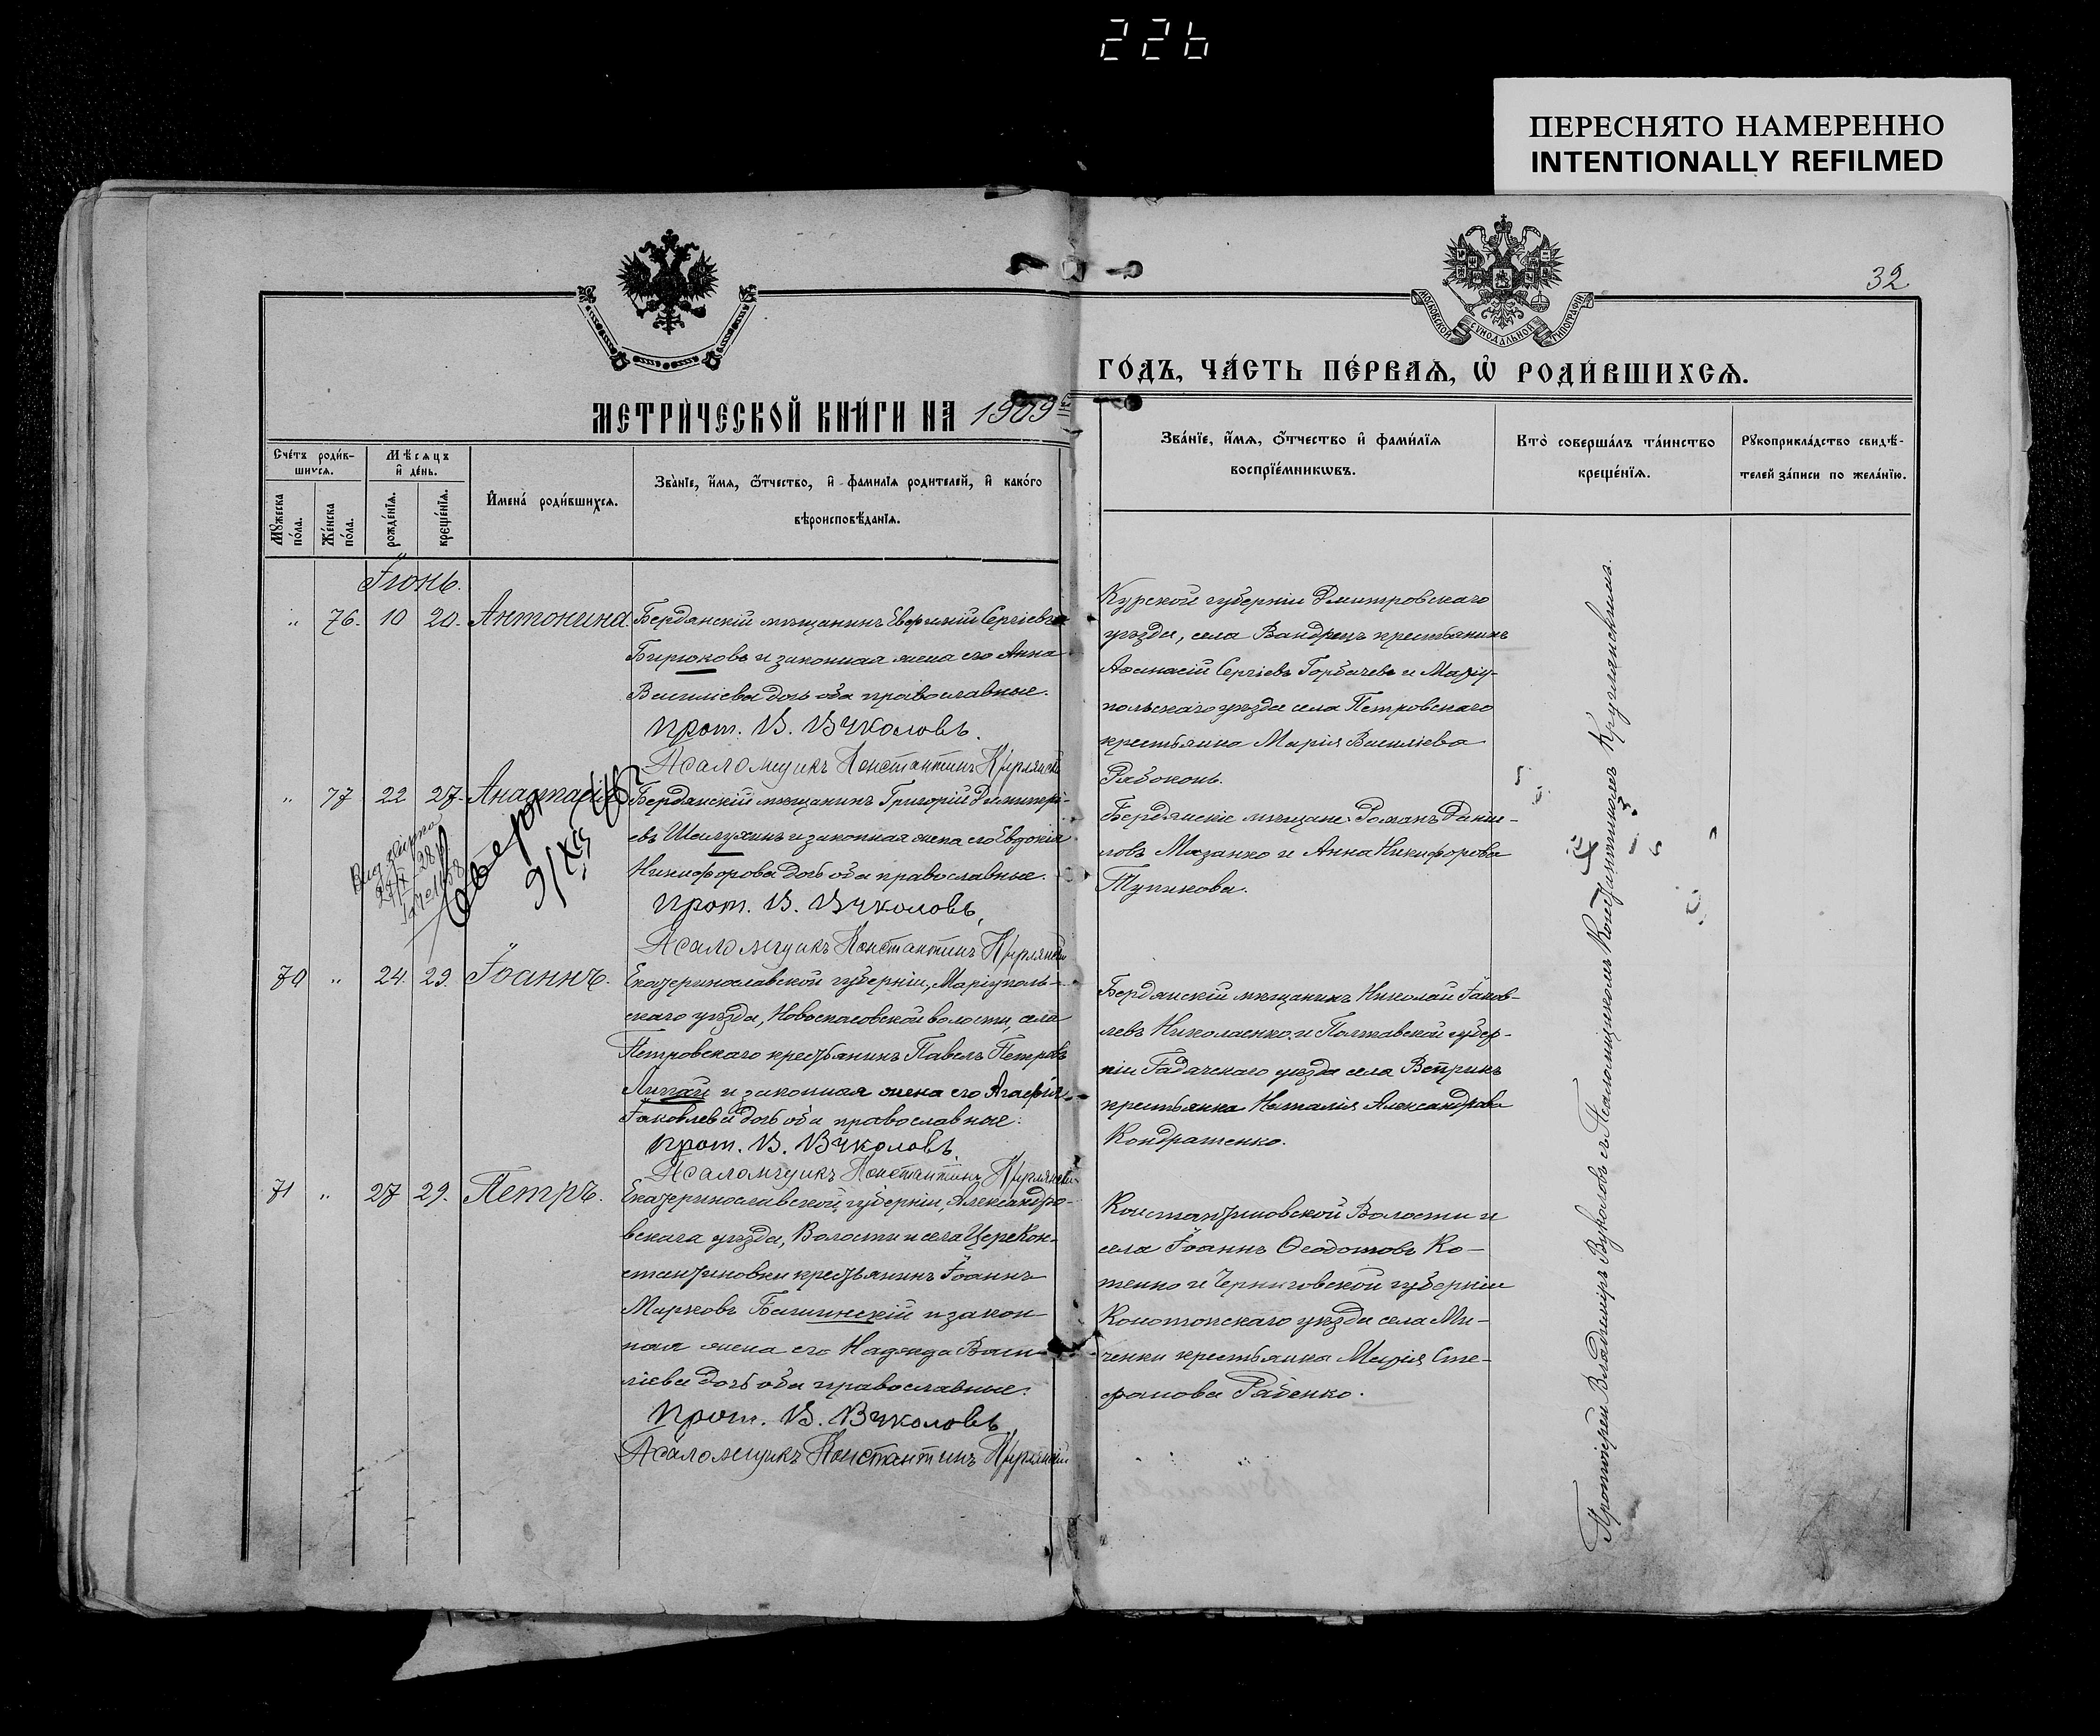 226
ПЕРЕСНЯТО НАМЕРЕННО
INTENTIONALLY REFILMED
32
МОСКОВСКОЙ СѴНОДАЛЬНОЙ ТИПОГРАФІИ
МЕТРИ́ЧЕСКОЙ КНИ́ГИ НА 1909
ГО́ДЪ, ЧА́СТЬ ПЕ́РВАѦ, Ѽ РОДИ́ВШИХСѦ.
Сче́тъ роди́в-
шихсѧ.
Мꙋ́жеска по́ла.
Же́нска по́ла.
Мѣ́сѧцъ
и҆ де́нь.
рожде́нїѧ.
креще́нїѧ.
И҆мена̀ роди́вшихсѧ.
Зва́нїе, и҆́мѧ, ѻ҆́тчество, и҆ фами́лїѧ роди́телей, и҆ како́го
вѣроисповѣ́данїѧ.
Зва́нїе, и҆́мѧ, ѻ҆́тчество и҆ фами́лїѧ
воспрїе́мникѡвъ.
Кто̀ соверша́лъ та́инство
креще́нїѧ.
Рꙋкоприкла́дство свидѣ́-
телей за́писи по жела́нїю.
Іюнь.
" 76. 10 20. Антонина. Бердянскій мѣщанинъ Евфимій Сергіевъ
Бирюковъ и законная жена его Анна
Василіева дочь оба православные.
Прот. В. Вуколовъ.
Псаломщикъ Константинъ
Курской губерніи Дмитровскаго
уѣзда, села крестьянинъ
Аѳанасій Сергіевъ Горбачевъ и Маріу-
польскаго уѣзда села Петровскаго
крестьянка Марія Василіева
Рябоконь.
" 77 22 27. Анастасія Бердянскій мѣщанинъ Григорій Димитрі-
евъ Шелухинъ и законная жена его Евдокія
Никифорова дочь оба православные.
Прот. В. Вуколовъ.
Псаломщикъ Константинъ
9/XII
Бердянскіе мѣщане: Романъ Даніи-
ловъ Мазанко и Анна Никифорова
Тупикова.
70 " 24. 29. Іоаннъ. Екатеринославской губерніи, Маріуполь-
скаго уѣзда, Новоспасовской волости, села
Петровскаго крестьянинъ Павелъ Петровъ
Лигай и законная жена его Агафія
Іаковлева дочь оба православные.
Прот. В. Вуколовъ.
Псаломщикъ Константинъ
Бердянскій мѣщанинъ Николай Іаков-
левъ Николаенко и Полтавской губер-
ніи Гадячскаго уѣзда села Веприкъ
крестьянка Наталія Александрова
Кондратенко.
71 " 27 29. Петръ. Екатеринославской губерніи, Александро-
вскаго уѣзда, Волости и села ЦареКон-
стантиновки крестьянинъ Іоаннъ
Марковъ Башинскій и закон
ная жена его Надежда Васи
ліева дочь оба православные.
Прот. В. Вуколовъ.
Псаломщикъ Константинъ
Константиновской Волости и
села Іоаннъ Ѳеодотовъ Ко-
тенко и Черниговской губерніи
Конотопскаго уѣзда села Ми-
ченки крестьянка Марія Сте-
фанова Рябенко.
Протоіерей Владиміръ Вуколовъ съ Псаломщикомъ Константиномъ Круглянскимъ.